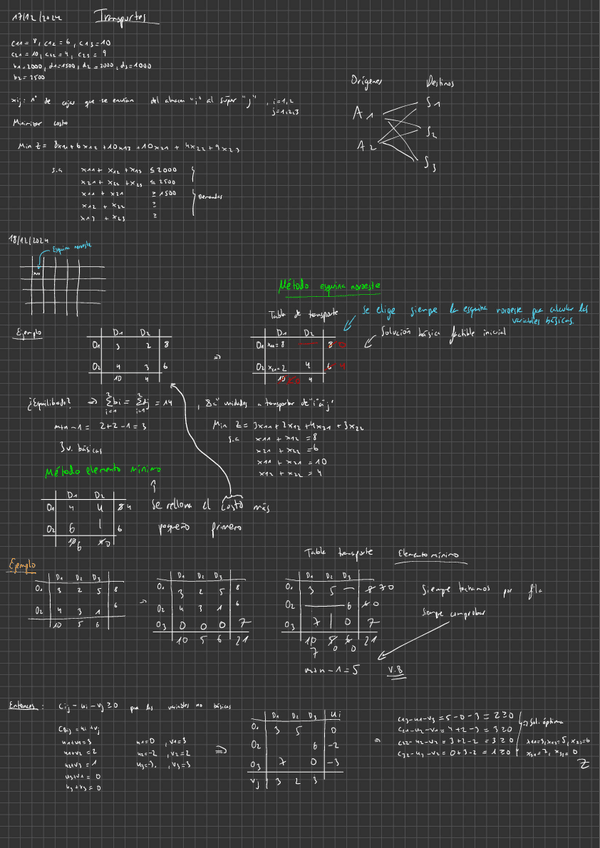 17/12/2024 Transportes
c11 = 8, c12 = 6, c13 = 10
c21 = 10, c22 = 4, c23 = 9
b1 = 2000, d1 = 1500, d2 = 2000, d3 = 1000
b2 = 2500
xij: nº de cajas que se envían del almacen "i" al súper "j", i=1,2
j=1,2,3
Minimizar costo
Min Z = 8x11 + 6x12 + 10x13 + 10x21 + 4x22 + 9x23
s.a x11 + x12 + x13 ≤ 2000
x21 + x22 + x23 ≤ 2500
x11 + x21 ≥ 1500
x12 + x22 ≥
x13 + x23 ≥
Demandas
Orígenes Destinos
A1 S1
A2 S2
S3
18/12/2024
Esquina noroeste
Método esquina noroeste
Tabla de transporte
Se elige siempre la esquina noroeste para calcular las variables básicas
Solución básica factible inicial
Ejemplo
D1 D2
O1 3 2 8
O2 4 3 6
10 4
⇒
D1 D2
O1 x11 = 8 8
O2 x21 = 2 4 6
10 4
¿Equilibrado? ⇒ Σbi = Σdj = 14
m+n-1 = 2+2-1 = 3
3 v. básicas
unidades a transportar de "i" a "j"
Min Z = 3x11 + 2x12 + 4x21 + 3x22
s.a x11 + x12 = 8
x21 + x22 = 6
x11 + x21 = 10
x12 + x22 = 4
Método elemento mínimo
D1 D2
O1 4 4 8 4
O2 6 6
10 6 4 0
Se rellena el costo más
pequeño primero
Ejemplo
D1 D2 D3
O1 3 2 5 8
O2 4 3 1 6
10 5 6
D1 D2 D3
O1 3 2 5 8
O2 4 3 1 6
O3 0 0 0 7
10 5 6 21
Tabla transporte Elemento mínimo
D1 D2 D3
O1 3 5
O2 6
O3 7 0 7
21
m+n-1 = 5 V.B
Siempre tachamos por fila
siempre comprobar
Entonces: cij - ui - vj ≥ 0 para las variables no básicas
Cij = ui + vj
u1 + v1 = 3
u1 + v2 = 2
u2 + v3 = 1
u3 + v1 = 0
u3 + v3 = 0
u1 = 0, v1 = 3
u2 = -2, v2 = 2
u3 = -3, v3 = 3
⇒
D1 D2 D3 Ui
O1 3 5 0
O2 6 -2
O3 7 0 -3
Vj 3 2 3
c13 - u1 - v3 = 5 - 0 - 3 = 2 ≥ 0
c21 - u2 - v1 = 4 + 2 - 3 = 3 ≥ 0
c22 - u2 - v2 = 3 + 2 - 2 = 3 ≥ 0
c32 - u3 - v2 = 0 + 3 - 2 = 1 ≥ 0
Sol. óptima
x11 = 3, x12 = 5, x23 = 6
x31 = 7, x33 = 0
Z